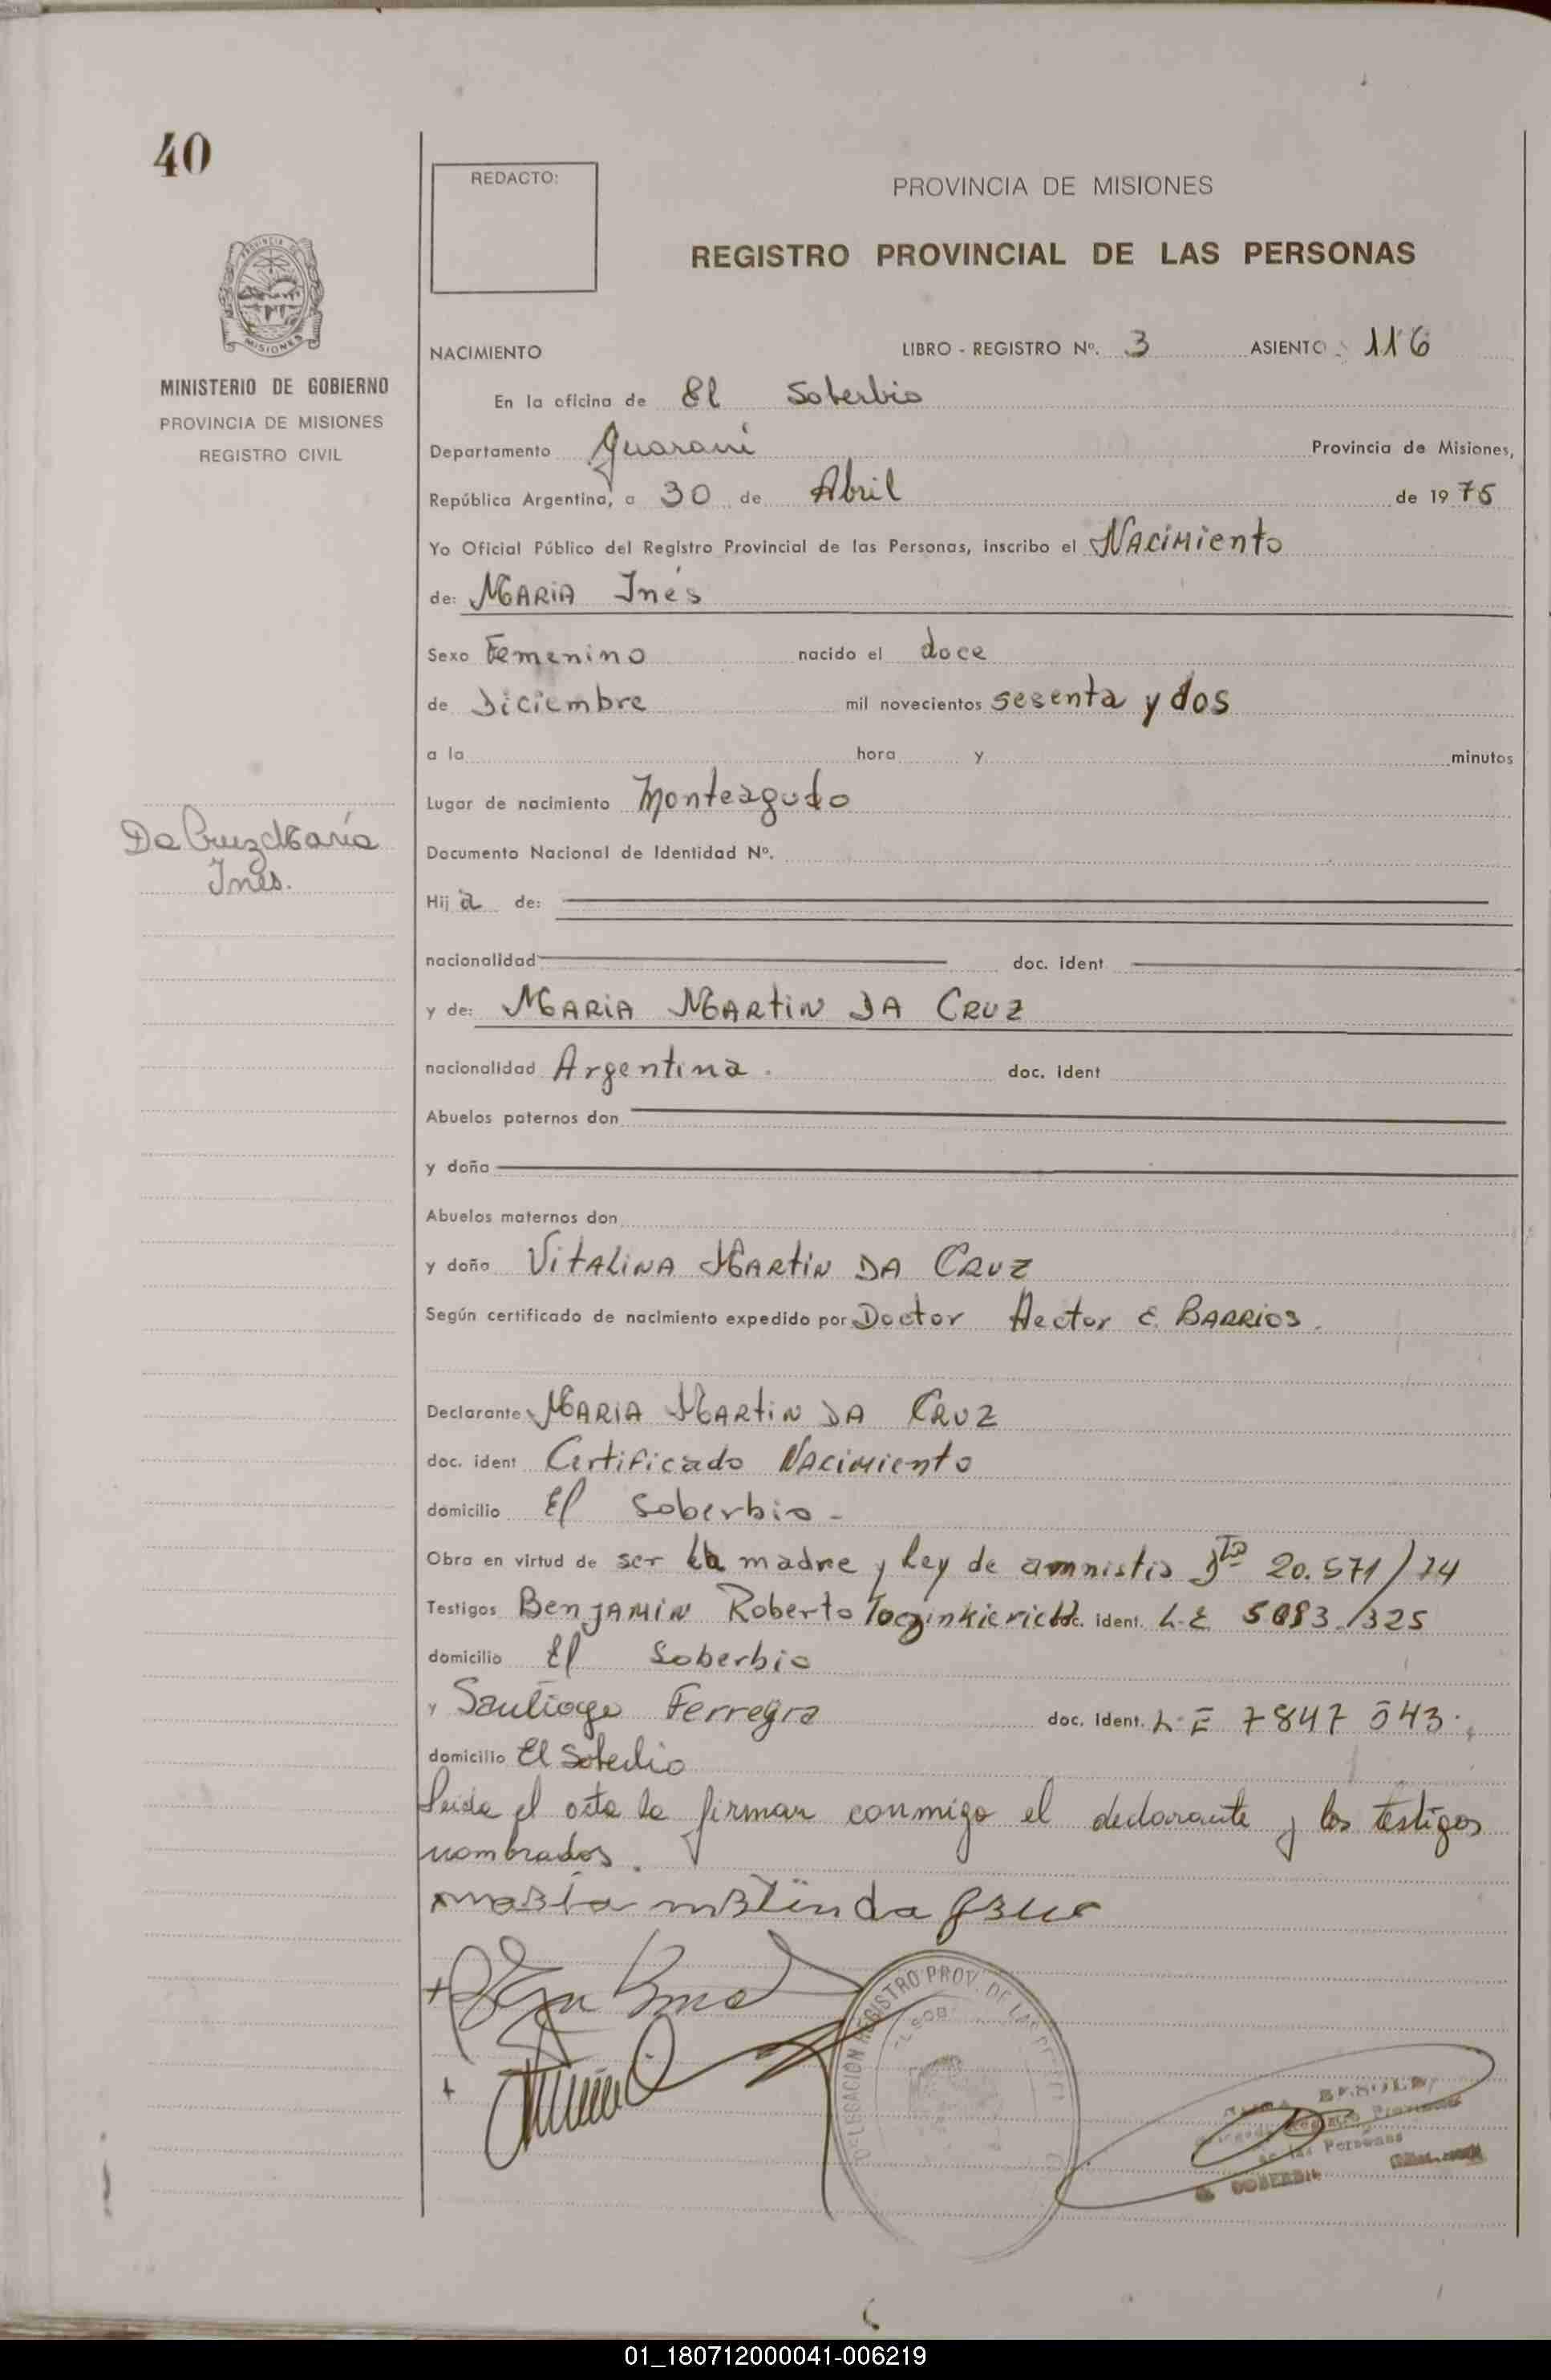 40
REDACTO:
PROVINCIA DE MISIONES
REGISTRO PROVINCIAL DE LAS PERSONAS
MISIONES
MINISTERIO DE GOBIERNO
PROVINCIA DE MISIONES
REGISTRO CIVIL
NACIMIENTO LIBRO - REGISTRO Nº. 3 ASIENTO 116
En la oficina de El Soberbio
Departamento Guaraní Provincia de Misiones,
República Argentina, a 30 de Abril de 1975
Yo Oficial Público del Registro Provincial de las Personas, inscribo el NACIMIENTO
de: MARIA Inés
Sexo Femenino nacido el doce
de Diciembre mil novecientos sesenta y dos
a la hora y minutos
Lugar de nacimiento Monteagudo
Da Cruz María
Inés.
Documento Nacional de Identidad Nº.
Hij a de:
nacionalidad doc. ident
y de: MARIA MARTIN DA CRUZ
nacionalidad Argentina. doc. ident
Abuelos paternos don
y doña
Abuelos maternos don
y doña VITALINA MARTIN DA CRUZ
Según certificado de nacimiento expedido por Doctor Hector E. BARRIOS.
Declarante MARIA MARTIN DA CRUZ
doc. ident Certificado NACIMIENTO
domicilio El Soberbio -
Obra en virtud de ser la madre y Ley de amnistia 20.571/74
Testigos BENJAMIN Roberto doc. ident. L.E 325
domicilio El Soberbio
y Santiago Ferreyra doc. ident. L.E 7847 543.
domicilio El Soberbio
Leida el acta la firman conmigo el declarante y los testigos
nombrados.
DELEGACIÓN REGISTRO PROV. DE LAS
de las Personas
SOBERBIO
01_180712000041-006219